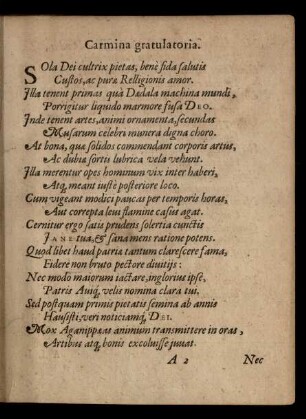 Carmina gratulatoria.
SOla Dei cultrix pietas, benè fida salutis
Custos, ac puræ Relligionis amor.
Illa tenent primas quà Dædala machina mundi,
Porrigitur liquido marmore fusa DEO.
Inde tenent artes, animi ornamenta, secundas
Musarum celebri munera digna choro.
At bona, quæ solidos commendant corporis artus,
Ac dubia sortis lubrica vela vehunt.
Illa merentur opes hominum vix inter haberi,
Atq, meant iustè posteriore loco.
Cum vigeant modici paucas per temporis horas,
Aut correpta leui flamine casus agat.
Cernitur ergo satis prudens solertia cunctis
JANE tua, & sana mens ratione potens.
Quod libet haud patria tantum clarescere fama,
Fidere non bruto pectore diuitijs:
Nec modo maiorum iactare, inglorius ipsè,
Patris Auiq, velis nomina clara tui.
Sed postquam primis pietatis semina ab annis
Hausisti, veri noticiamq, DEI.
Mox Aganippæas animum transmittere in oras,
Artibus atq, bonis excoluisse juuat.
A 2
Nec